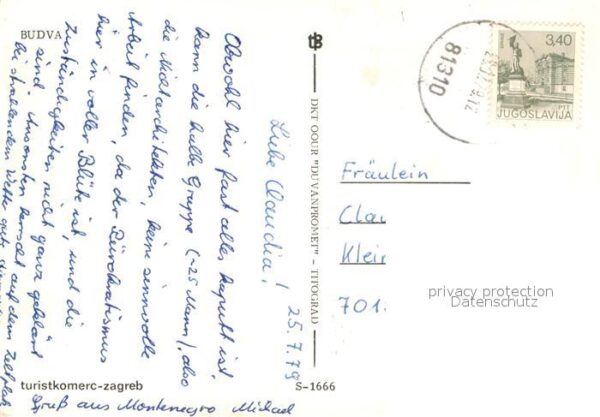 BUDVA
Liebe Claudia! 25.7.79
Obwohl hier fast alles kaputt ist
kann die halbe Gruppe (~25 Mann), also
die Nichtarchitekten, keine sinnvolle
Arbeit finden, da der Bürokratismus
hier in voller Blüte ist, und die
Zuständigkeiten nicht ganz geklärt
sind. Ansonsten herrscht auf dem Zeltplatz
bei strahlendem Wetter gute
Gruß aus Montenegro Michael
turistkomerc-zagreb
S-1666
DKT OOUR "DUVANPROMET" - TITOGRAD
81310
3,40
JUGOSLAVIJA
Fräulein
Clau
Klein
701.
privacy protection
Datenschutz